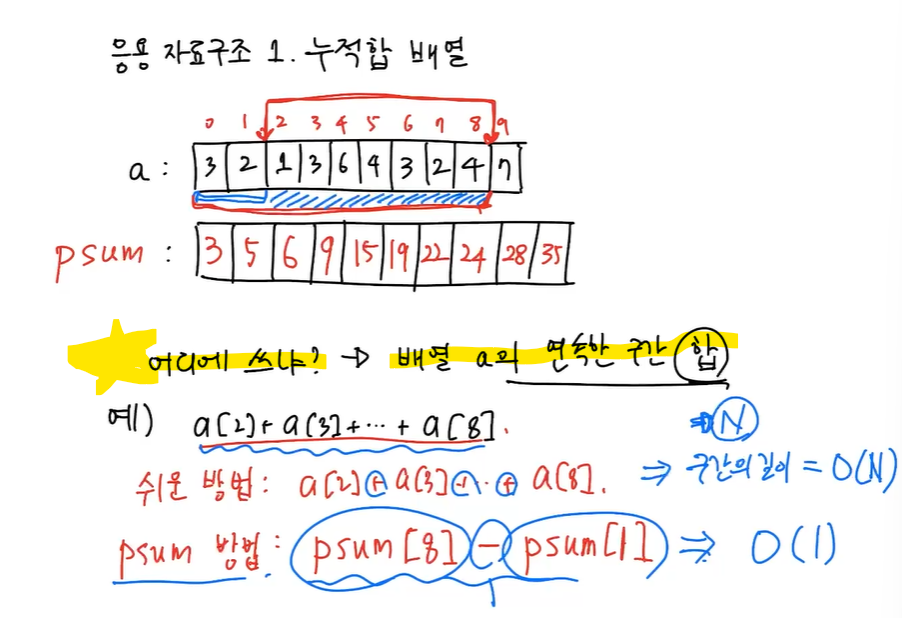 응용 자료구조 1. 누적합 배열
0 1 2 3 4 5 6 7 8 9
a : 3 2 1 3 6 4 3 2 4 7
psum : 3 5 6 9 15 19 22 24 28 35
어디에 쓰냐? → 배열 a의 연속한 구간 합
예) a[2]+a[3]+…+a[8]. ⇒ N
쉬운 방법: a[2]+a[3]+…+a[8]. ⇒ 구간의 길이 = O(N)
psum 방법: psum[8] - psum[1] ⇒ O(1)